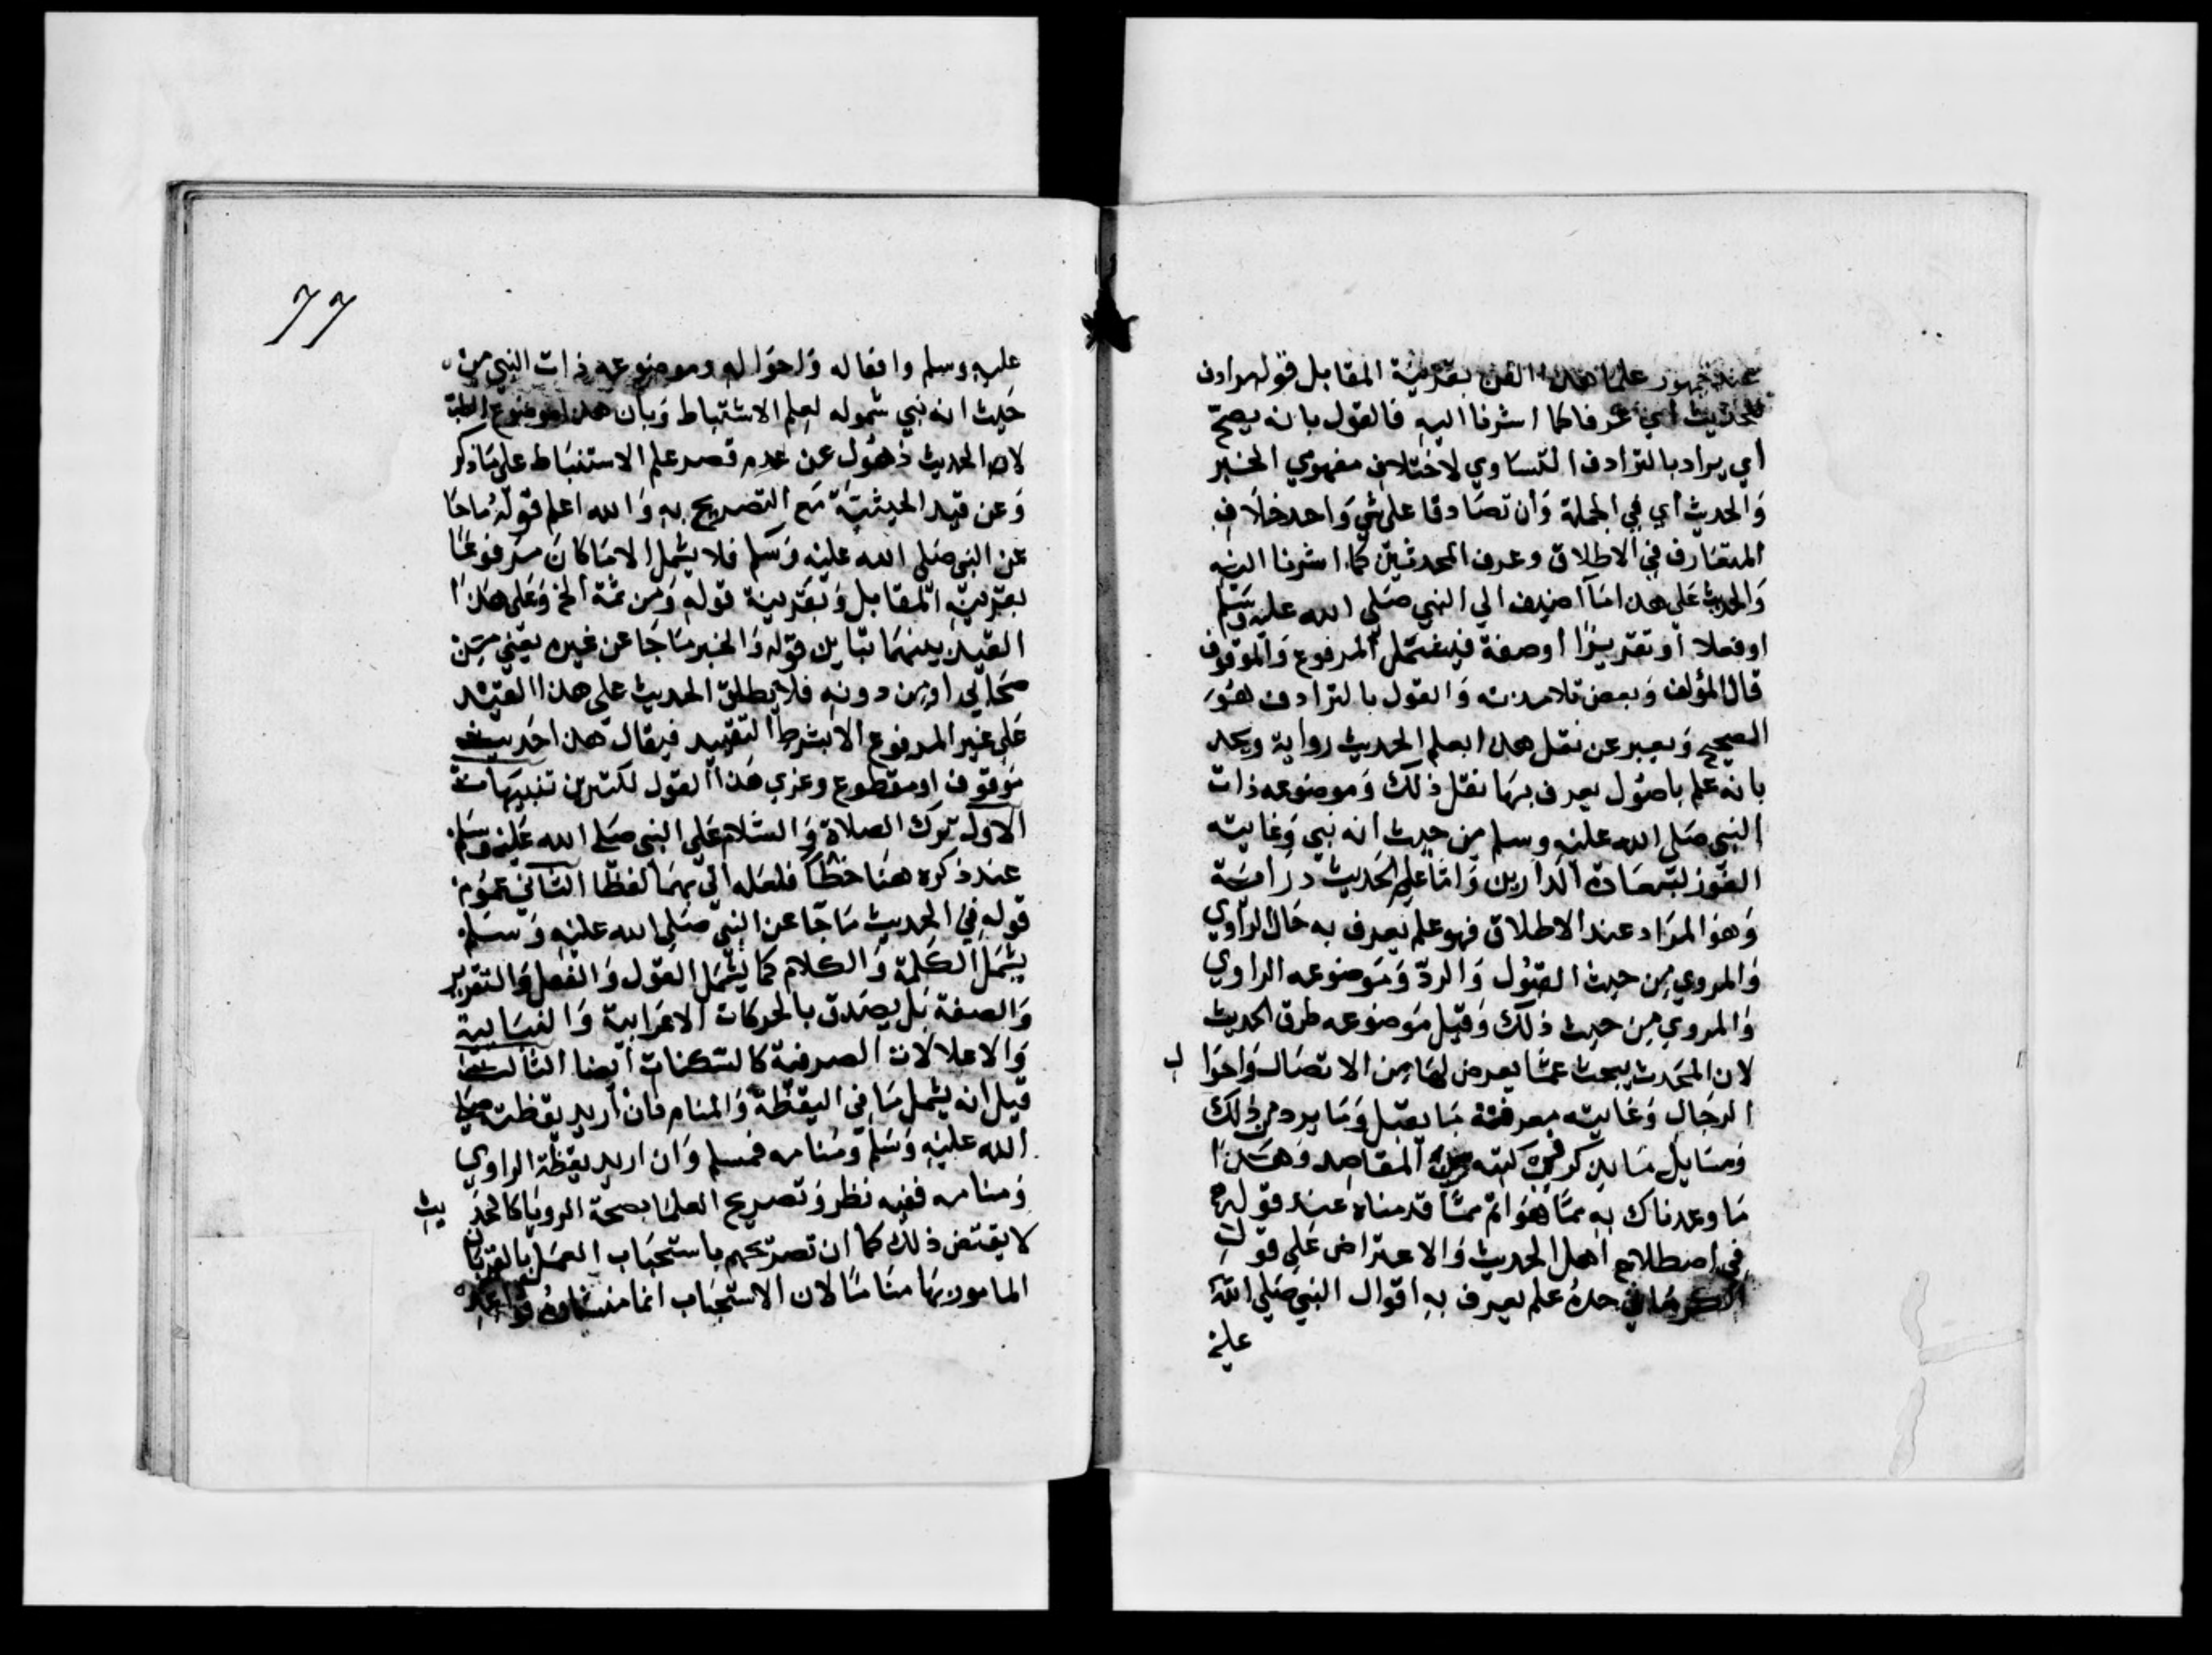 عند جمهور علما هذا الفن بقرينة المقابل قوله مرادف
للحديث أي عرفا كما اشرنا اليه فالقول بانه يصح
أي يراد بالترادف التساوي لاختلاف مفهومي الخبر
والحديث أي في الجملة وان تصادقا على شي واحد خلاف
المتعارف في الاطلاق وعرف المحدثين كما اشرنا اليه
والحديث على هذا ما أضيف الي النبي صلى الله عليه وسلم
او فعلا أو تقريرا أوصفة فيشمل المرفوع والموقوف
قال المؤلف وبعض تلامذته والقول بالترادف هو
الصحيح ويعبر عن نقل هذا بعلم الحديث رواية ويحد
بانه علم باصول يعرف بها نقل ذلك وموضوعه ذات
النبي صلى الله عليه وسلم من حيث أنه نبي وغايته
الفوز بسعادة الدارين وأما علم الحديث دراسة
وهو المراد عند الاطلاق فهو علم يعرف به حال الراوي
والمروي من حيث القبول والرد وموضوعه الراوي
والمروي من حيث ذلك وقيل موضوعه طرق الحديث
لان المحدث يبحث عما يعرض لها من الاتصال واحوا ل
الرجال وغايته معرفة ما يقبل وما يرد من ذلك
ومسايل ما يذكر في كتبه من المقاصد وهذا
ما وعدناك به مما هو اتم مما قدمناه عند قوله
في اصطلاح اهل الحديث والاعتراض على قول
الكرماني حده علم يعرف به اقوال النبي صلي الله
عليه
77
عليه وسلم وافعاله واحواله وموضوعه ذات النبي من
حيث انه نبي شموله لعلم الاستنباط وبأن هذا موضوع الطب
لا الحديث ذهول عن عدم قصد علم الاستنباط على ما ذكر
وعن قيد الحيثية مع التصريح به والله اعلم قوله ما جا
عن النبي صلى الله عليه وسلم فلا يشمل الا ما كان مرفوعا
بقرينة المقابل وبقرينة قوله ومن ثمة الخ وعلى هذا
القيد بينهما تباين قوله والخبر ما جا عن غيره يعني من
صحابي او من دونه فلا يطلق الحديث على هذا القيد
على غير المرفوع الا بشرط التقييد فيقال هذا حديث
موقوف او مقطوع وعزي هذا القول لكثيرين تنبيهات
الاول ترك الصلاة والسلام على النبي صلى الله عليه وسلم
عند ذكره هنا خطا فلعله اتي بهما لفظا الثاني عموم
قوله في الحديث ما جا عن النبي صلى الله عليه وسلم
يشمل الكلمة والكلام كما يشمل القول والفعل والتقرير
والصفة بل يصدق بالحركات الاعرابية والبنائية
والاعلالات الصرفية كالسكنات أيضا الثالث
قيل انه يشمل ما في اليقظة والمنام فان أريد يقظته صلى
الله عليه وسلم ومنامه فمسلم وان اريد يقظة الراوي
ومنامه ففيه نظر وتصريح العلما بصحة الرويا كالحد يث
لا يقتض ذلك كما ان تصريحهم باستحباب العمل بالقربات
المامور بها مناما لان الاستحباب انما منشاوه قواعد